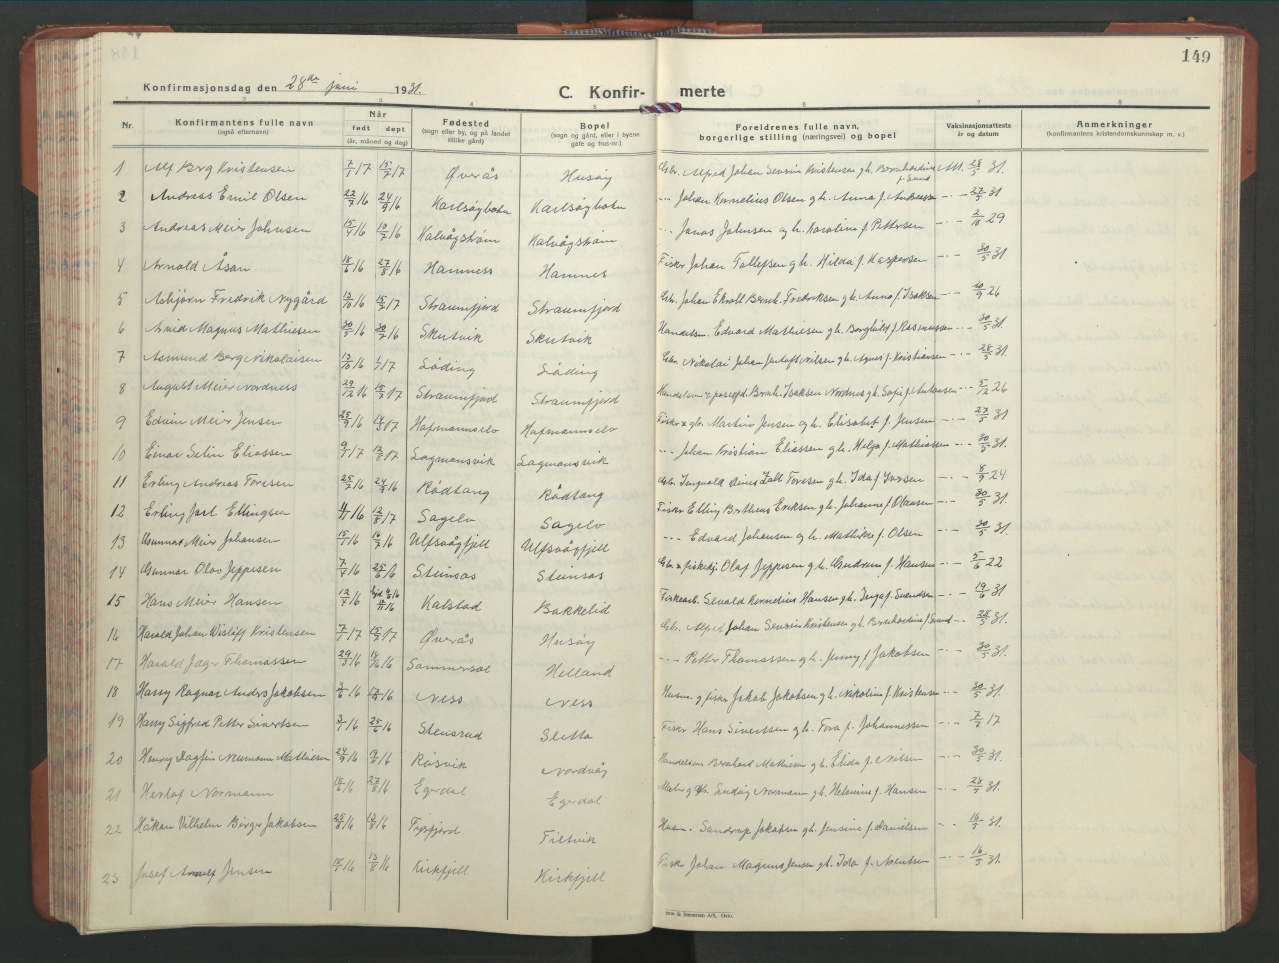 149
Konfirmasjonsdag den 28de juni 1931.
C. Konfir- merte
1 2 3 4 5 6 7 8
Nr. Konfirmantens fulle navn (også efternavn) Når født døpt (år, måned og dag) Fødested (sogn eller by, og på landet tillike gård) Bopel (sogn og gård, eller i byene gate og hus-nr.) Foreldrenes fulle navn, borgerlige stilling (næringsvei) og bopel Vaksinasjonsattests år og datum Anmerkninger (konfirmantens kristendomskunnskap m. v.)
1 Alf Berg Kristensen 7/1 17 15/7 17 Øverås Husøy Gbr. Alfred Johan Severin Kristensen g h. Bernhardine f. Sund Att. 28/5 31.
2 Andreas Emil Olsen 22/7 16 24/9 16 Karlsøybotn Karlsøybotn -- Johan Kornelius Olsen g h. Anna f. Andreassen -- 27/5 31
3 Andreas Meier Johnsen 15/4 16 10/7 16 Kalvågstrøm Kalvågstrøm -- Jonas Johnsen og h. Karoline f. Pettersen -- 29
4 Arnold Åsan 27/8 16 Hamness Hamnes Fisker Johan Tollefsen g h. Hilda f. Kaspersen -- 30/5 31
5 Asbjørn Fredrik Nygård 13/10 16 15/7 17 Straumfjord Straumfjord Gbr. Johan Ekroll Bernh. Fredriksen g h. Anna f. Isaksen -- 10/9 26
6 Arvid Magnus Mathiesen 30/5 16 30/7 16 Skutvik Skutvik Handelsm. Edvard Mathiesen g h. Borghild f. Rasmussen -- 30/5 31.
7 Asmund Berg Nikolaisen 13/10 16 17 Løding Løding Gbr. Nikolai Johan Gustaft Nilsen g h. Agnes f. Kristiansen -- 28/5 31.
8 August Meier Nordness 29/12 16 15/7 17 Straumfjord Straumfjord Handelsm. & poståpn. Bernh. Isaksen Nordnes g h. Sofie f. Antonsen -- 5/12 26
9 Edvin Meier Jensen 25/9 16 17 Hopmannselv Hopmannselv Fisker & gbr. Martin Jensen og h. Elisabet f. Jensen -- 27/5 31.
10 Einar Selin Eliassen 17 12/8 17 Lagmansvik Lagmansvik -- Johan Kristian Eliassen g h. Helga f. Mathiassen -- 30/5 31.
11 Erling Andreas Foresen 25/7 16 24/9 16 Rødtang Rødtang Gbr. Ingvald Foresen g h. Ida f. Iversen -- 24
12 Erling Jarl Ellingsen 16 12/8 17 Sagelv Sagelv Fisker Elling Bertheus Eriksen g h. Johanne f. -- 30/5 31.
13 Gunnar Meier Johansen 16 16/7 16 Ulfsvågfjell Ulfsvågfjell -- Edvard Johansen og h. Mathilde f. Olsen -- 30/5 31.
14 Gunnar Olav Jeppesen 7/4 16 25/6 16 Steinsås Steinsås Gbr. & fiskekj. Olaf Jeppesen g h. Gudrun f. Hansen -- 5/6 22
15 Hans Meier Hansen 12/7 16 16 Kalstad Bakkelid Fiskearb. Sevald Kornelius Hansen g h. Inga f. Svendsen -- 19/6 31
16 Harald Johan Wisløff Kristensen 7/1 17 15/7 17 Øverås Husøy Gbr. Alfred Johan Severin Kristensen g h. Bernhardine f. Sund -- 28/5 31.
17 Harald Jæger Thomassen 29/8 16 16 Sommersel Helland -- Petter Thomassen g h. Jenny f. Jakobsen -- 30/5 31.
18 Harry Ragnar Anders Jakobsen 3/6 16 16 Ness Ness Husm. og fisker Jakob Jakobsen g h. Nikoline f. Kristensen -- 30/5 31.
19 Harry Sigfred Petter Sivertsen 3/1 16 25/6 16 Stensrud Sletta Fisker Hans Sivertsen g h. Tora f. Johannessen -- 17
20 Henry Dagfin Neumann Mathiesen 24/9 16 16 Røsvik Nordvåg Handelsm Bernhard Mathiesen g h. Elida f. Nilsen -- 30/5 31.
21 Herlof Normann 16 27/8 16 Egedal Egedal Maler & gbr. Sverdrup Normann g h. Helmine f. Hansen -- 28/5 31.
22 Håkon Vilhelm Birger Jakobsen 25/8 16 16 Tysfjord Filtvik Husm. Jakobsen g h. Jensine f. Danielsen -- 16/5 31.
23 Josef Arnulf Jensen 16 13/8 16 Kirkfjell Kirkfjell Fisker Johan Magnus Jensen g h. Ida f. Arentsen -- 16/5 31.
& Simensen A/S, Oslo.